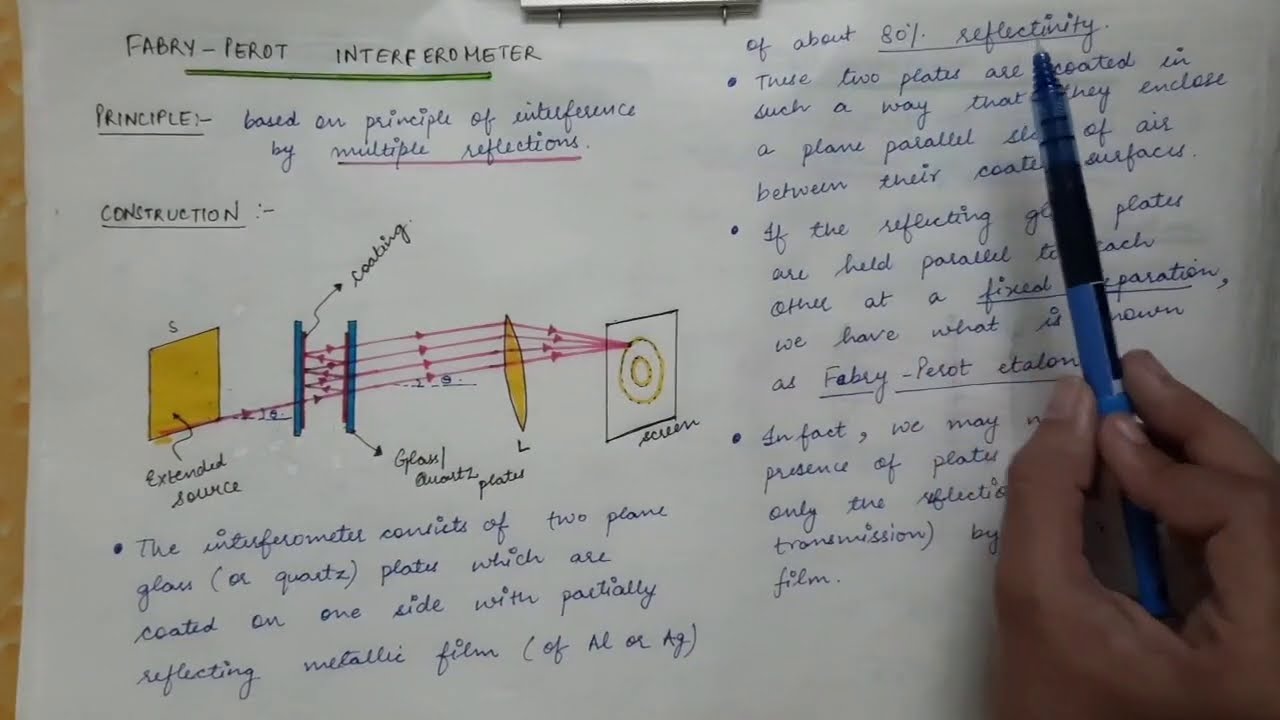 FABRY-PEROT INTERFEROMETER
PRINCIPLE:- based on principle of interference
by multiple reflections.
CONSTRUCTION :-
coating
S
θ
θ
Extended
source
Glass/
Quartz plates
L
screen
• The interferometer consists of two plane
glass (or quartz) plates which are
coated on one side with partially
reflecting metallic film (of Al or Ag)
of about 80% reflectivity.
• These two plates are coated in
such a way that they enclose
a plane parallel of air
between their surfaces.
• If the reflecting plates
are held parallel to each
other at a fixed separation,
we have what is
as Fabry-Perot etalon
• Infact, we may
presence of plates
only the
transmission) by
film.